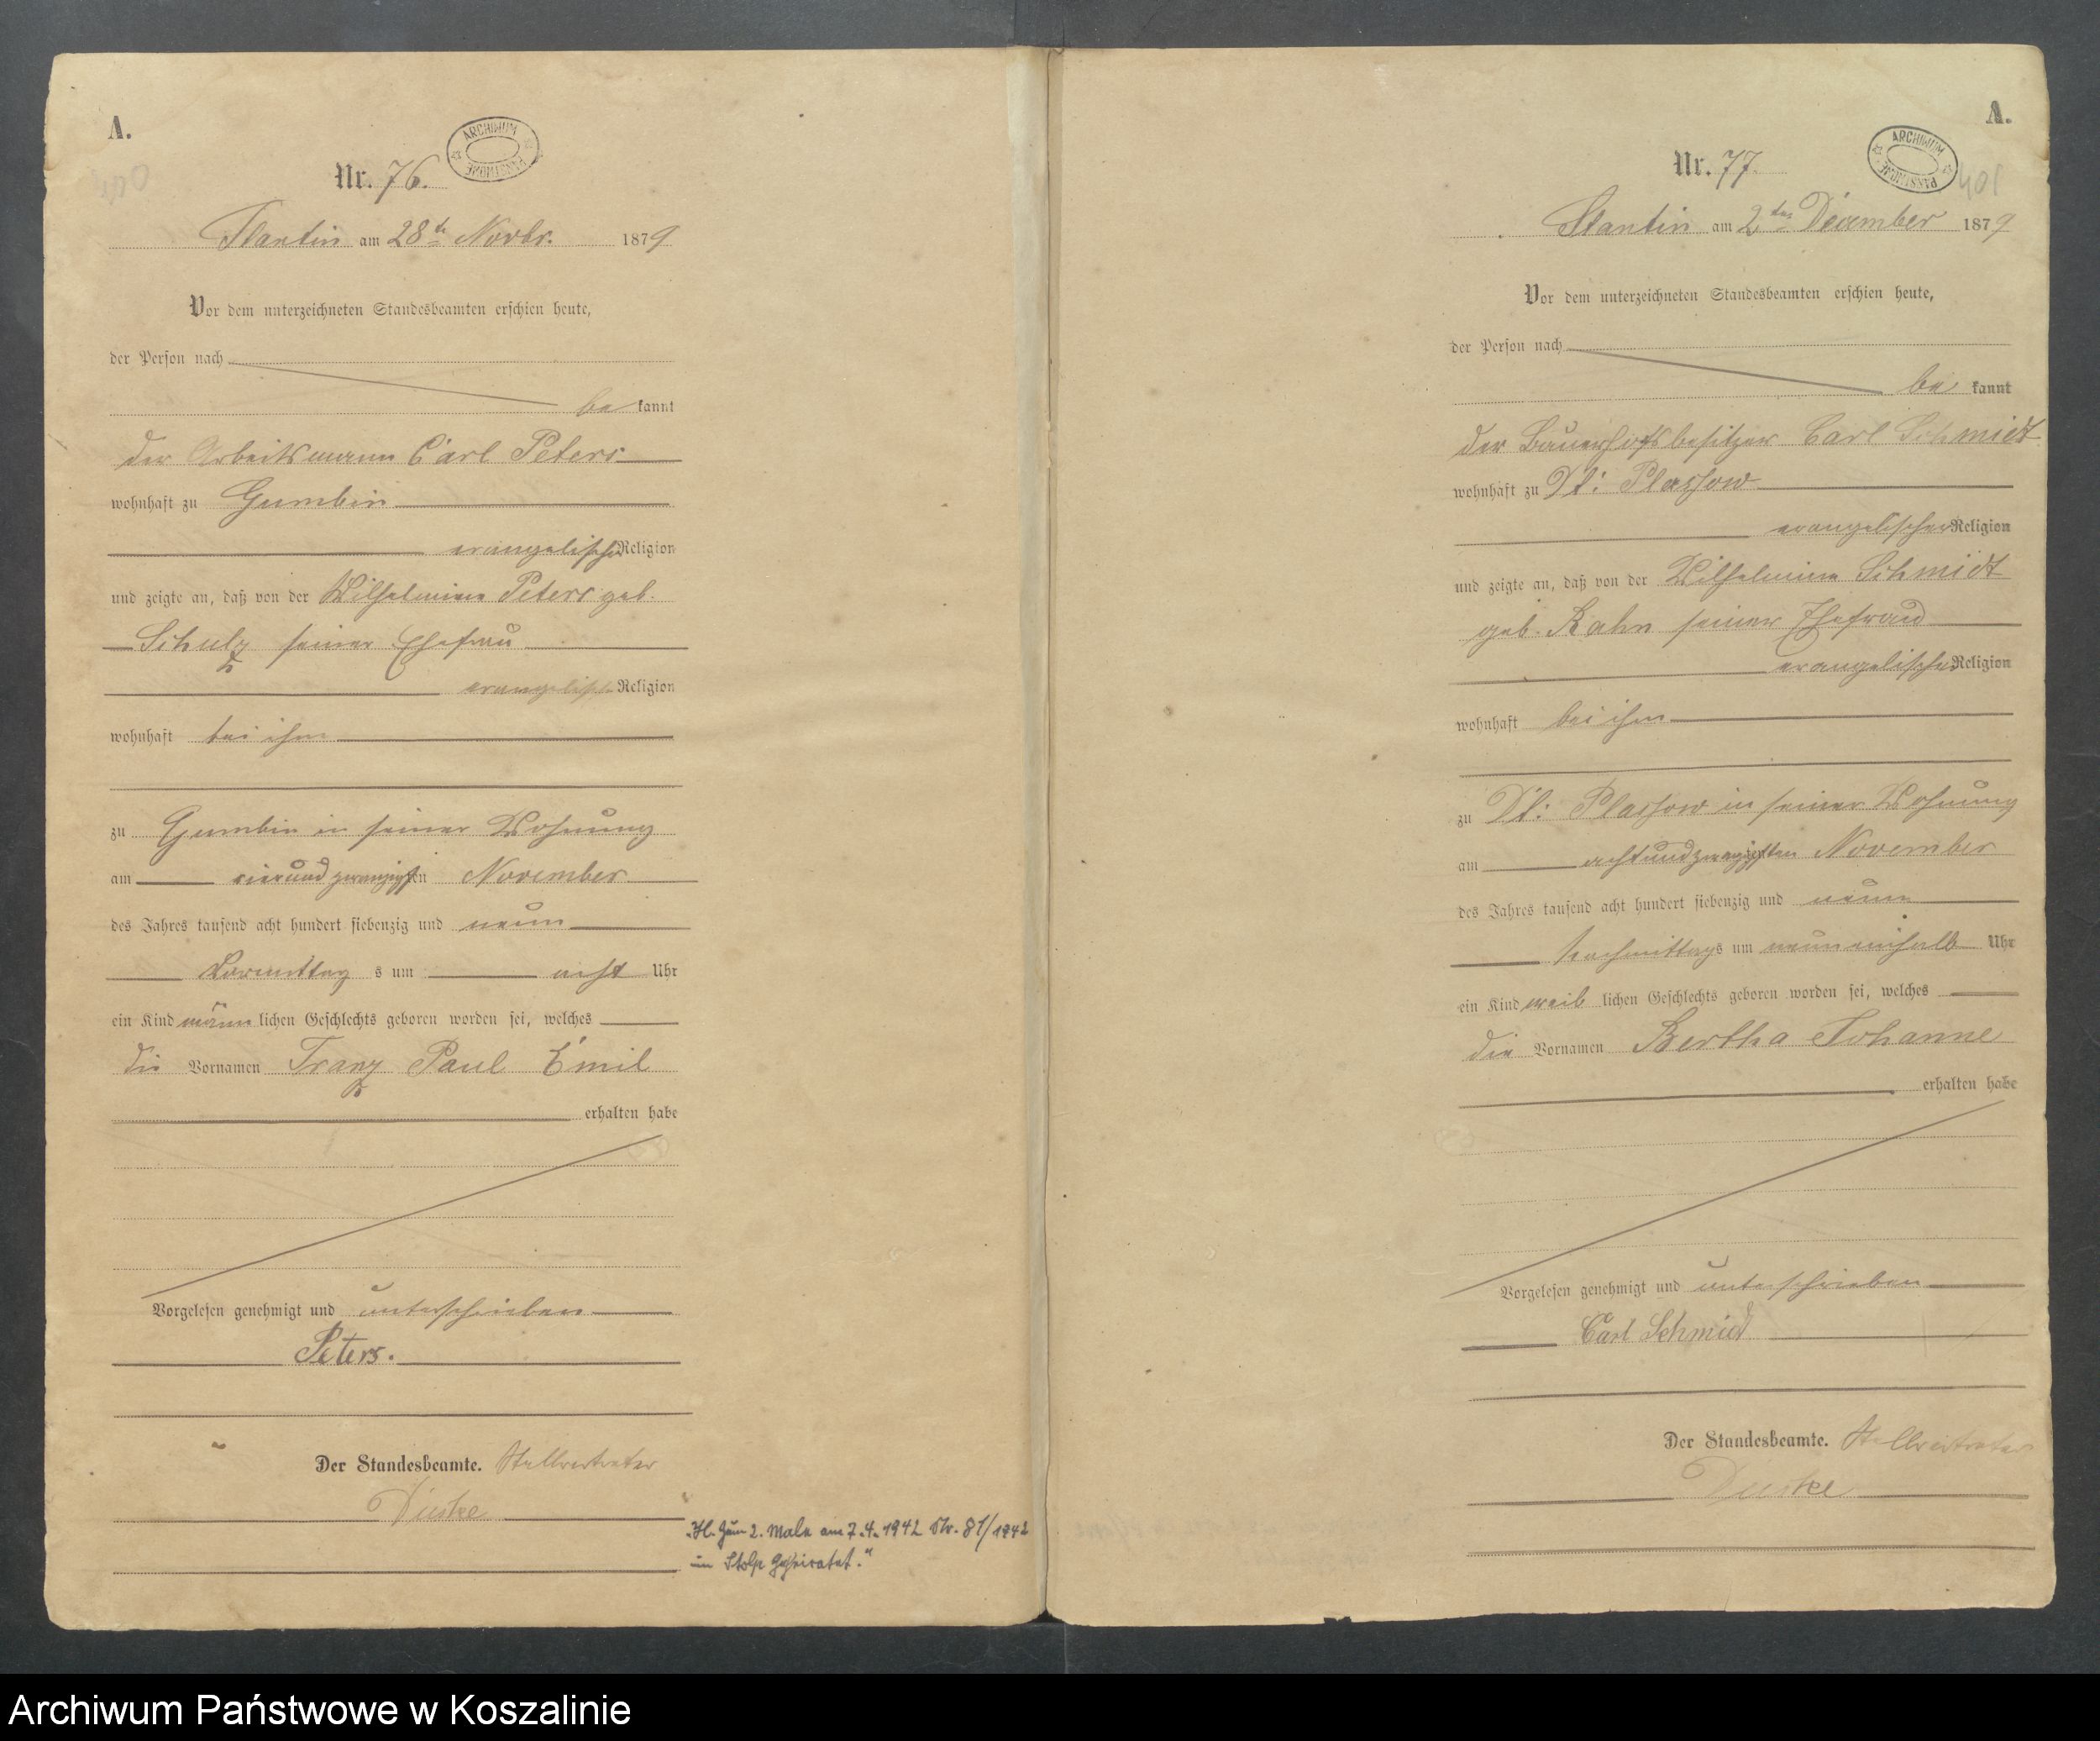 A.
Nr. 76.
ARCHIWUM PAŃSTWOWE
400
Flantin am 28te Novbr. 1879
Vor dem unterzeichneten Standesbeamten erschien heute,
der Person nach
be kannt
der Arbeitsmann Carl Peters
wohnhaft zu Gumbin
evangelischer Religion
und zeigte an, daß von der Wilhelmine Peters geb.
Schulz seiner Ehefrau
evangelischer Religion
wohnhaft bei ihm
zu Gumbin in seiner Wohnung
am vierundzwanzigsten November
des Jahres tausend acht hundert siebenzig und neun
Vormittag s um acht Uhr
ein Kind männ lichen Geschlechts geboren worden sei, welches
die Vornamen Franz Paul Emil
erhalten habe
Vorgelesen genehmigt und unterschrieben
Peters.
Der Standesbeamte. Stellvertreter
"Kl. zum 2. Male am 7.4.1942 Nr. 81/1942
in Stolp geheiratet."
A.
Nr. 77.
ARCHIWUM PAŃSTWOWE
401
Flantin am 2ten December 1879
Vor dem unterzeichneten Standesbeamten erschien heute,
der Person nach
be kannt
der Bauerhofsbesitzer Carl Schmidt
wohnhaft zu Dt: Plassow
evangelischer Religion
und zeigte an, daß von der Wilhelmine Schmidt
geb. Kahn seiner Ehefrau
evangelischer Religion
wohnhaft bei ihm
zu Dt: Plassow in seiner Wohnung
am achtundzwanzigsten November
des Jahres tausend acht hundert siebenzig und neun
Nachmittags um neuneinhalb Uhr
ein Kind weib lichen Geschlechts geboren worden sei, welches
die Vornamen Bertha Johanne
erhalten habe
Vorgelesen genehmigt und unterschrieben
Carl Schmidt
Der Standesbeamte. Stellvertreter
Archiwum Państwowe w Koszalinie